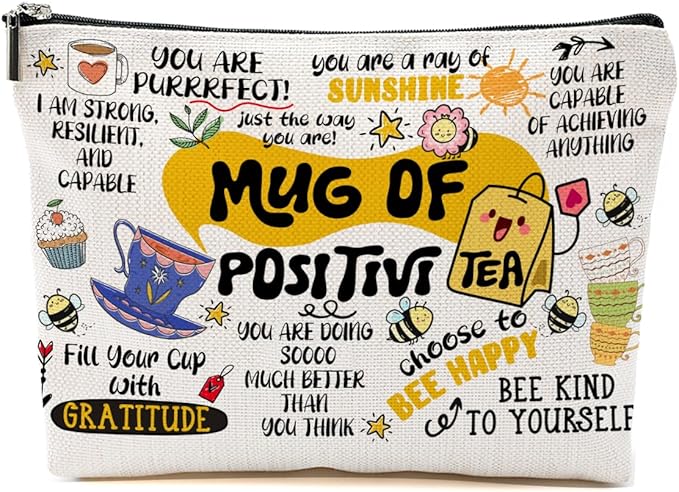 YOU ARE
PURRRFECT!
just the way
you are!
you are a ray of
SUNSHINE
YOU ARE
CAPABLE
OF ACHIEVING
ANYTHING
I AM STRONG,
RESILIENT,
AND
CAPABLE
MUG OF
POSITIVI TEA
Fill Your Cup
with
GRATITUDE
YOU ARE DOING
SOOOO
MUCH BETTER
THAN
YOU THINK
choose to
BEE HAPPY
BEE KIND
TO YOURSELF